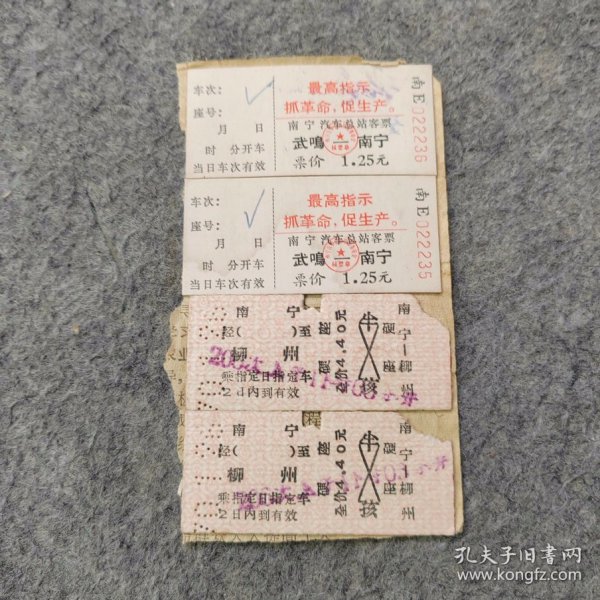 车次：
座号：
月 日
时 分开车
当日车次有效
最高指示
抓革命，促生产。
南宁汽车总站客票
武鳴—南宁
票价 1.25元
南E022236
车次：
座号：
月 日
时 分开车
当日车次有效
最高指示
抓革命，促生产。
南宁汽车总站客票
武鳴—南宁
票价 1.25元
南E022235
南 宁
经( )至
柳 州
乘指定日指定车
2日内到有效
硬 座
全价4.40元
半
孩
南宁—柳州
硬座
南 宁
经( )至
柳 州
乘指定日指定车
2日内到有效
硬 座
全价4.40元
半
孩
南宁 柳州
硬座
孔夫子旧书网
www.kongfz.com